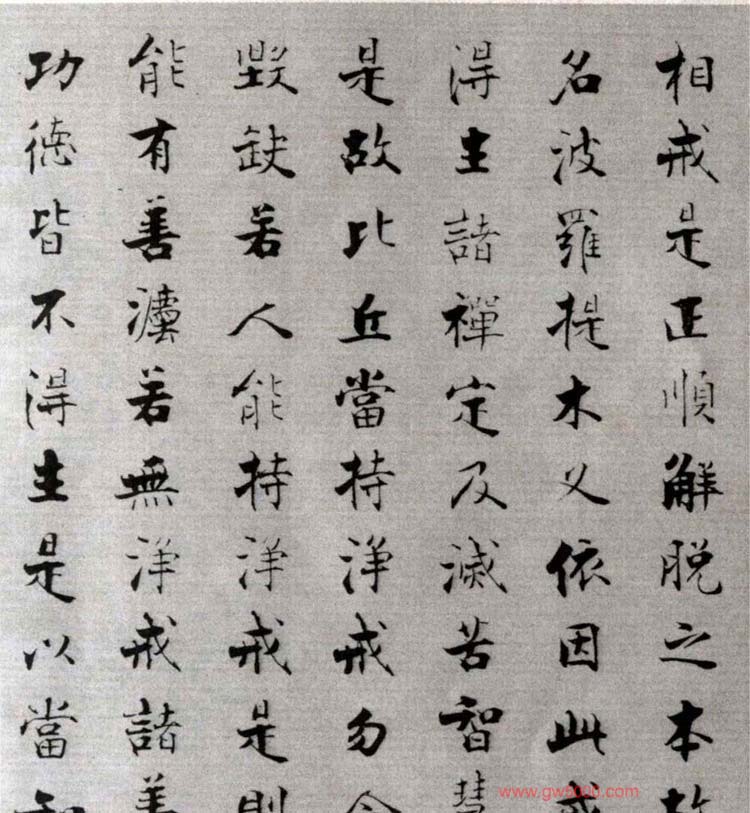 相戒是正順解脫之本故
名波羅提木义依因此戒
得生諸禪定及滅苦智慧
是故比丘當持淨戒勿令
毀缺若人能持淨戒是則
能有善灋若無淨戒諸善
功德皆不得生是以當知
www.gw5000.com